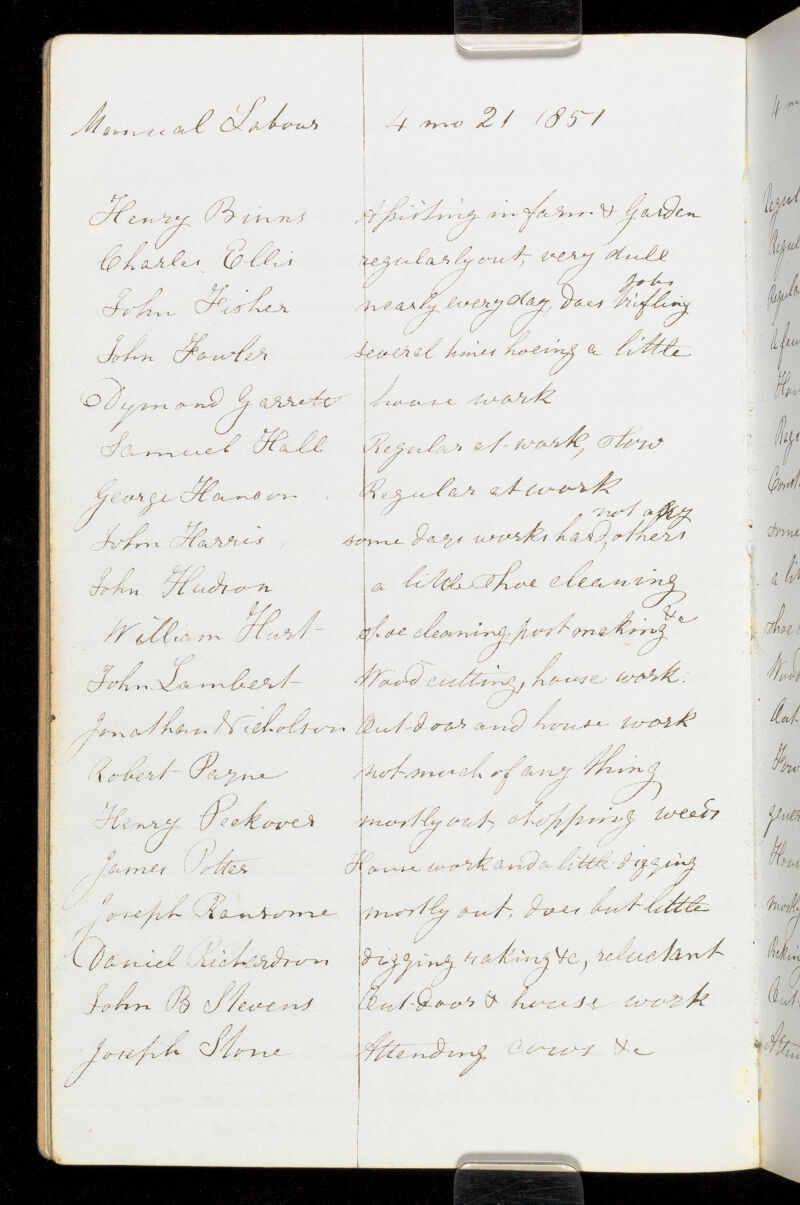 Manual Labour 4 mo 21 1851
Henry Binns Assisting in farm & Garden
Charles Ellis regularly out, very dull
John Fisher nearly every day, does trifling jobs
John Fowler several times hoeing a little
Dymond Garrett house work
Samuel Hall Regular at work, slow
George Hanson Regular at work
John Harris some days works hard, others not any
John Hudson a little Shoe cleaning
William Hurt shoe cleaning, post making &c
John Lambert Wood cutting, house work.
Jonathan Nicholson Out door and house work
Robert Payne not much of any thing
Henry Peckover mostly out, chopping weeds
James Potter House work and a little digging
Joseph Ransome mostly out, does but little
Daniel Richardson digging raking &c, reluctant
John B Stevens Out-door & house work
Joseph Stone Attending cows &c